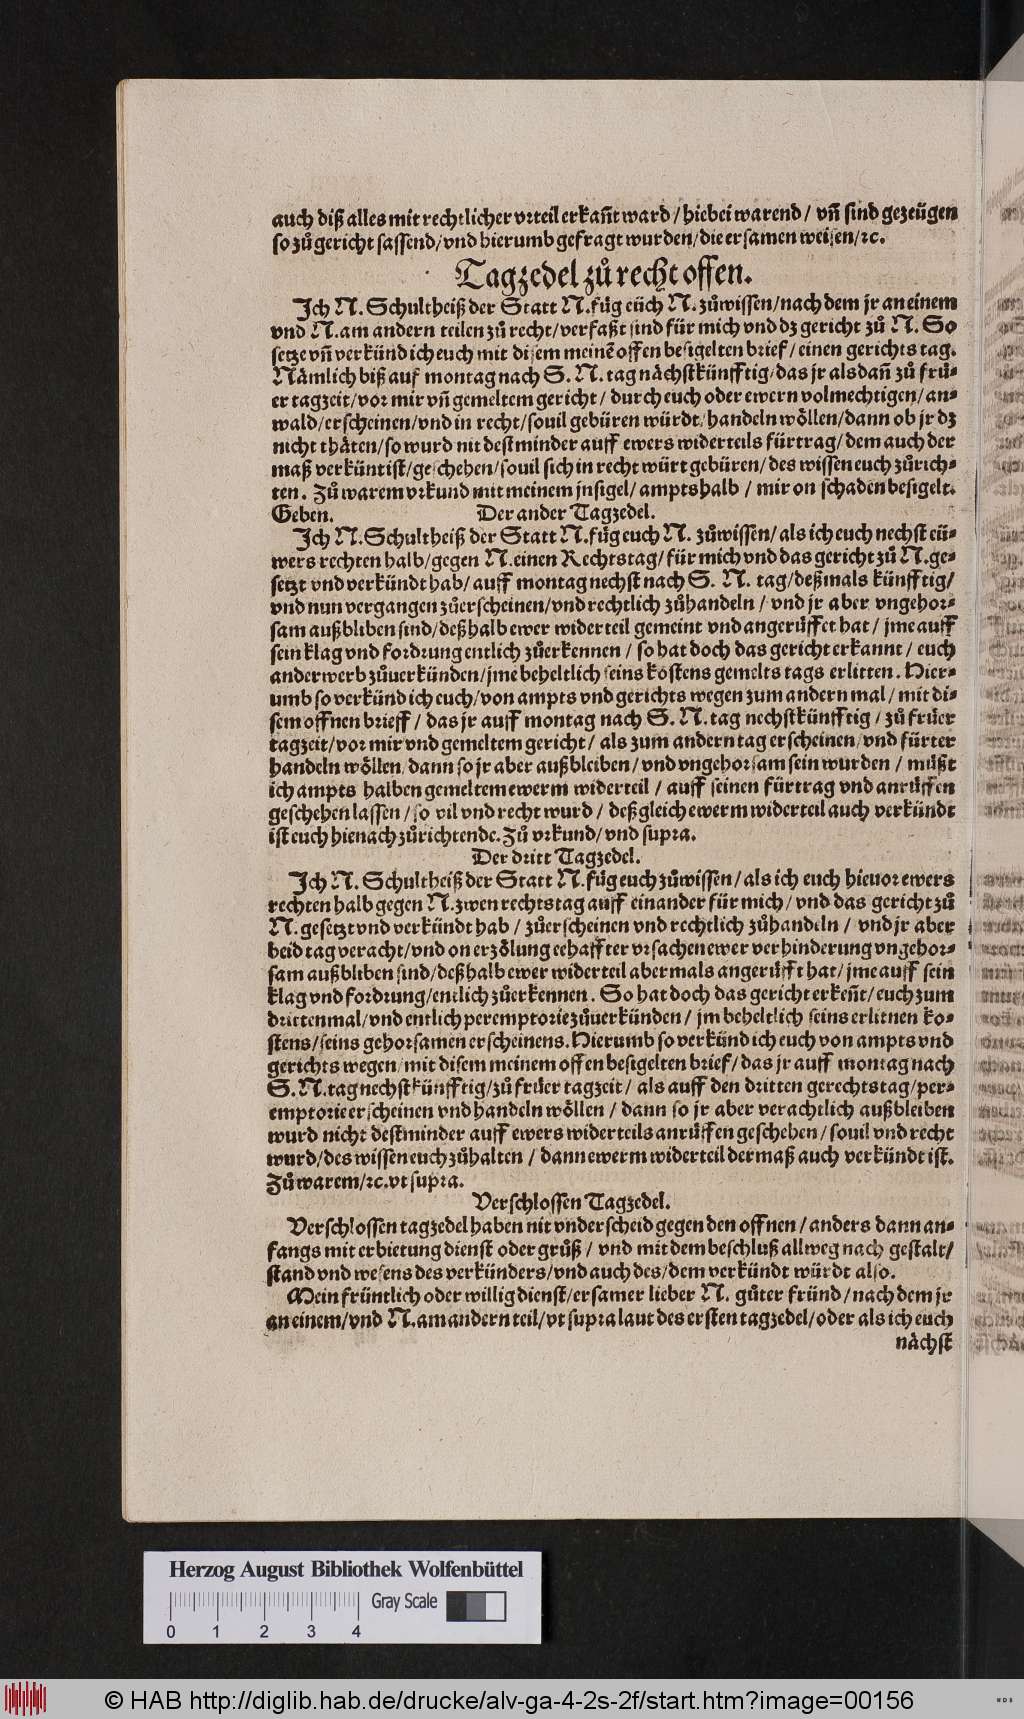 auch diß alles mit rechtlicher vrteil erkañt ward / hiebei warend / vñ sind gezeügen
so zů gericht sassend / vnd hierumb gefragt wurden / die ersamen weisen / ꝛc.
Tagzedel zů recht offen.
Ich N. Schultheiß der Statt N. füg eüch N. zůwissen / nach dem jr an einem
vnd N. am andern teilen zů recht / verfaßt sind für mich vnd dz gericht zů N. So
setze vñ verkünd ich euch mit disem meinẽ offen besigelten brief / einen gerichts tag.
Nämlich biß auf montag nach S. N. tag nächstkünfftig / das jr alsdañ zů frů-
er tagzeit / vor mir vñ gemeltem gericht / durch euch oder ewern volmechtigen / an-
wald / erscheinen / vnd in recht / souil gebüren würdt / handeln wöllen / dann ob jr dz
nicht thäten / so wurd nit dest minder auff ewers widerteils fürtrag / dem auch der
maß verkünt ist / geschehen / souil sich in recht würt gebüren / des wissen euch zůrich-
ten. Zů warem vrkund mit meinem jnsigel / ampts halb / mir on schaden besigelt.
Geben. Der ander Tagzedel.
Ich N. Schultheiß der Statt N. füg euch N. zůwissen / als ich euch nechst eü-
wers rechten halb / gegen N. einen Rechtstag / für mich vnd das gericht zů N. ge-
setzt vnd verkündt hab / auff montag nechst nach S. N. tag / deßmals künfftig /
vnd nun vergangen zůerscheinen / vnd rechtlich zůhandeln / vnd jr aber vngehor-
sam außbliben sind / deßhalb ewer widerteil gemeint vnd angerüffet hat / jme auff
sein klag vnd fordrung entlich zůerkennen / so hat doch das gericht erkannt / euch
anderwerb zůuerkünden / jme beheltlich seins kostens gemelts tags erlitten. Hier-
umb so verkünd ich euch / von ampts vnd gerichts wegen zum andern mal / mit di-
sem offnen brieff / das jr auff montag nach S. N. tag nechstkünfftig / zů früer
tagzeit / vor mir vnd gemeltem gericht / als zum andern tag erscheinen / vnd fürter
handeln wöllen / dann so jr aber außbleiben / vnd vngehorsam sein wurden / müßt
ich ampts halben gemeltem ewerm widerteil / auff seinen fürtrag vnd anrüffen
geschehen lassen / so vil vnd recht wurd / deßgleich ewerm widerteil auch verkündt
ist euch hienach zůrichtende. Zů vrkund / vnd supra.
Der dritt Tagzedel.
Ich N. Schultheiß der Statt N. füg euch zůwissen / als ich euch hieuor ewers
rechten halb gegen N. zwen rechtstag auff einander für mich / vnd das gericht zů
N. gesetzt vnd verkündt hab / zůerscheinen vnd rechtlich zůhandeln / vnd jr aber
beid tag veracht / vnd on erzölung eehaffter vrsachen ewer verhinderung vngehor-
sam außbliben sind / deßhalb ewer widerteil abermals angerüfft hat / jme auff sein
klag vnd fordrung / entlich zůerkennen. So hat doch das gericht erkeñt / euch zum
dritten mal / vnd entlich peremptorie zůuerkünden / jm beheltlich seins erlitnen ko-
stens / seins gehorsamen erscheinens. Hierumb so verkünd ich euch von ampts vnd
gerichts wegen / mit disem meinem offen besigelten brief / das jr auff montag nach
S. N. tag nechstkünfftig / zů früer tagzeit / als auff den dritten gerechtstag / per-
emptorie erscheinen vnd handeln wöllen / dann so jr aber verachtlich außbleiben
wurd nicht destminder auff ewers widerteils anrüffen geschehen / souil vnd recht
wurd / des wissen euch zůhalten / dann ewerm widerteil dermaß auch verkündt ist.
Zů warem / ꝛc. vt supra.
Verschlossen Tagzedel.
Verschlossen tagzedel haben nit vnderscheid gegen den offnen / anders dann an-
fangs mit erbietung dienst oder grůß / vnd mit dem beschluß allweg nach gestalt /
stand vnd wesens des verkünders / vnd auch des / dem verkündt würdt also.
Mein früntlich oder willig dienst / ersamer lieber N. gůter fründ / nach dem jr
an einem / vnd N. am andern teil / vt supra laut des ersten tagzedel / oder als ich euch
nächst
Herzog August Bibliothek Wolfenbüttel
Gray Scale
0 1 2 3 4
© HAB http://diglib.hab.de/drucke/alv-ga-4-2s-2f/start.htm?image=00156